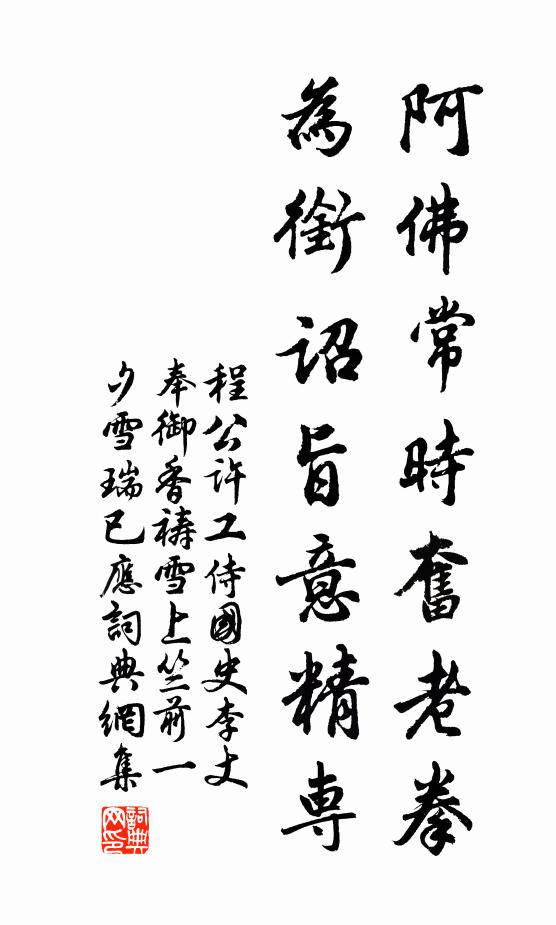 阿佛常時奮老拳
為銜詔旨意精専
程公許工侍國史李丈
奉御香禱雪上竺前一
夕雪瑞已應詞典網集
詞典
网印